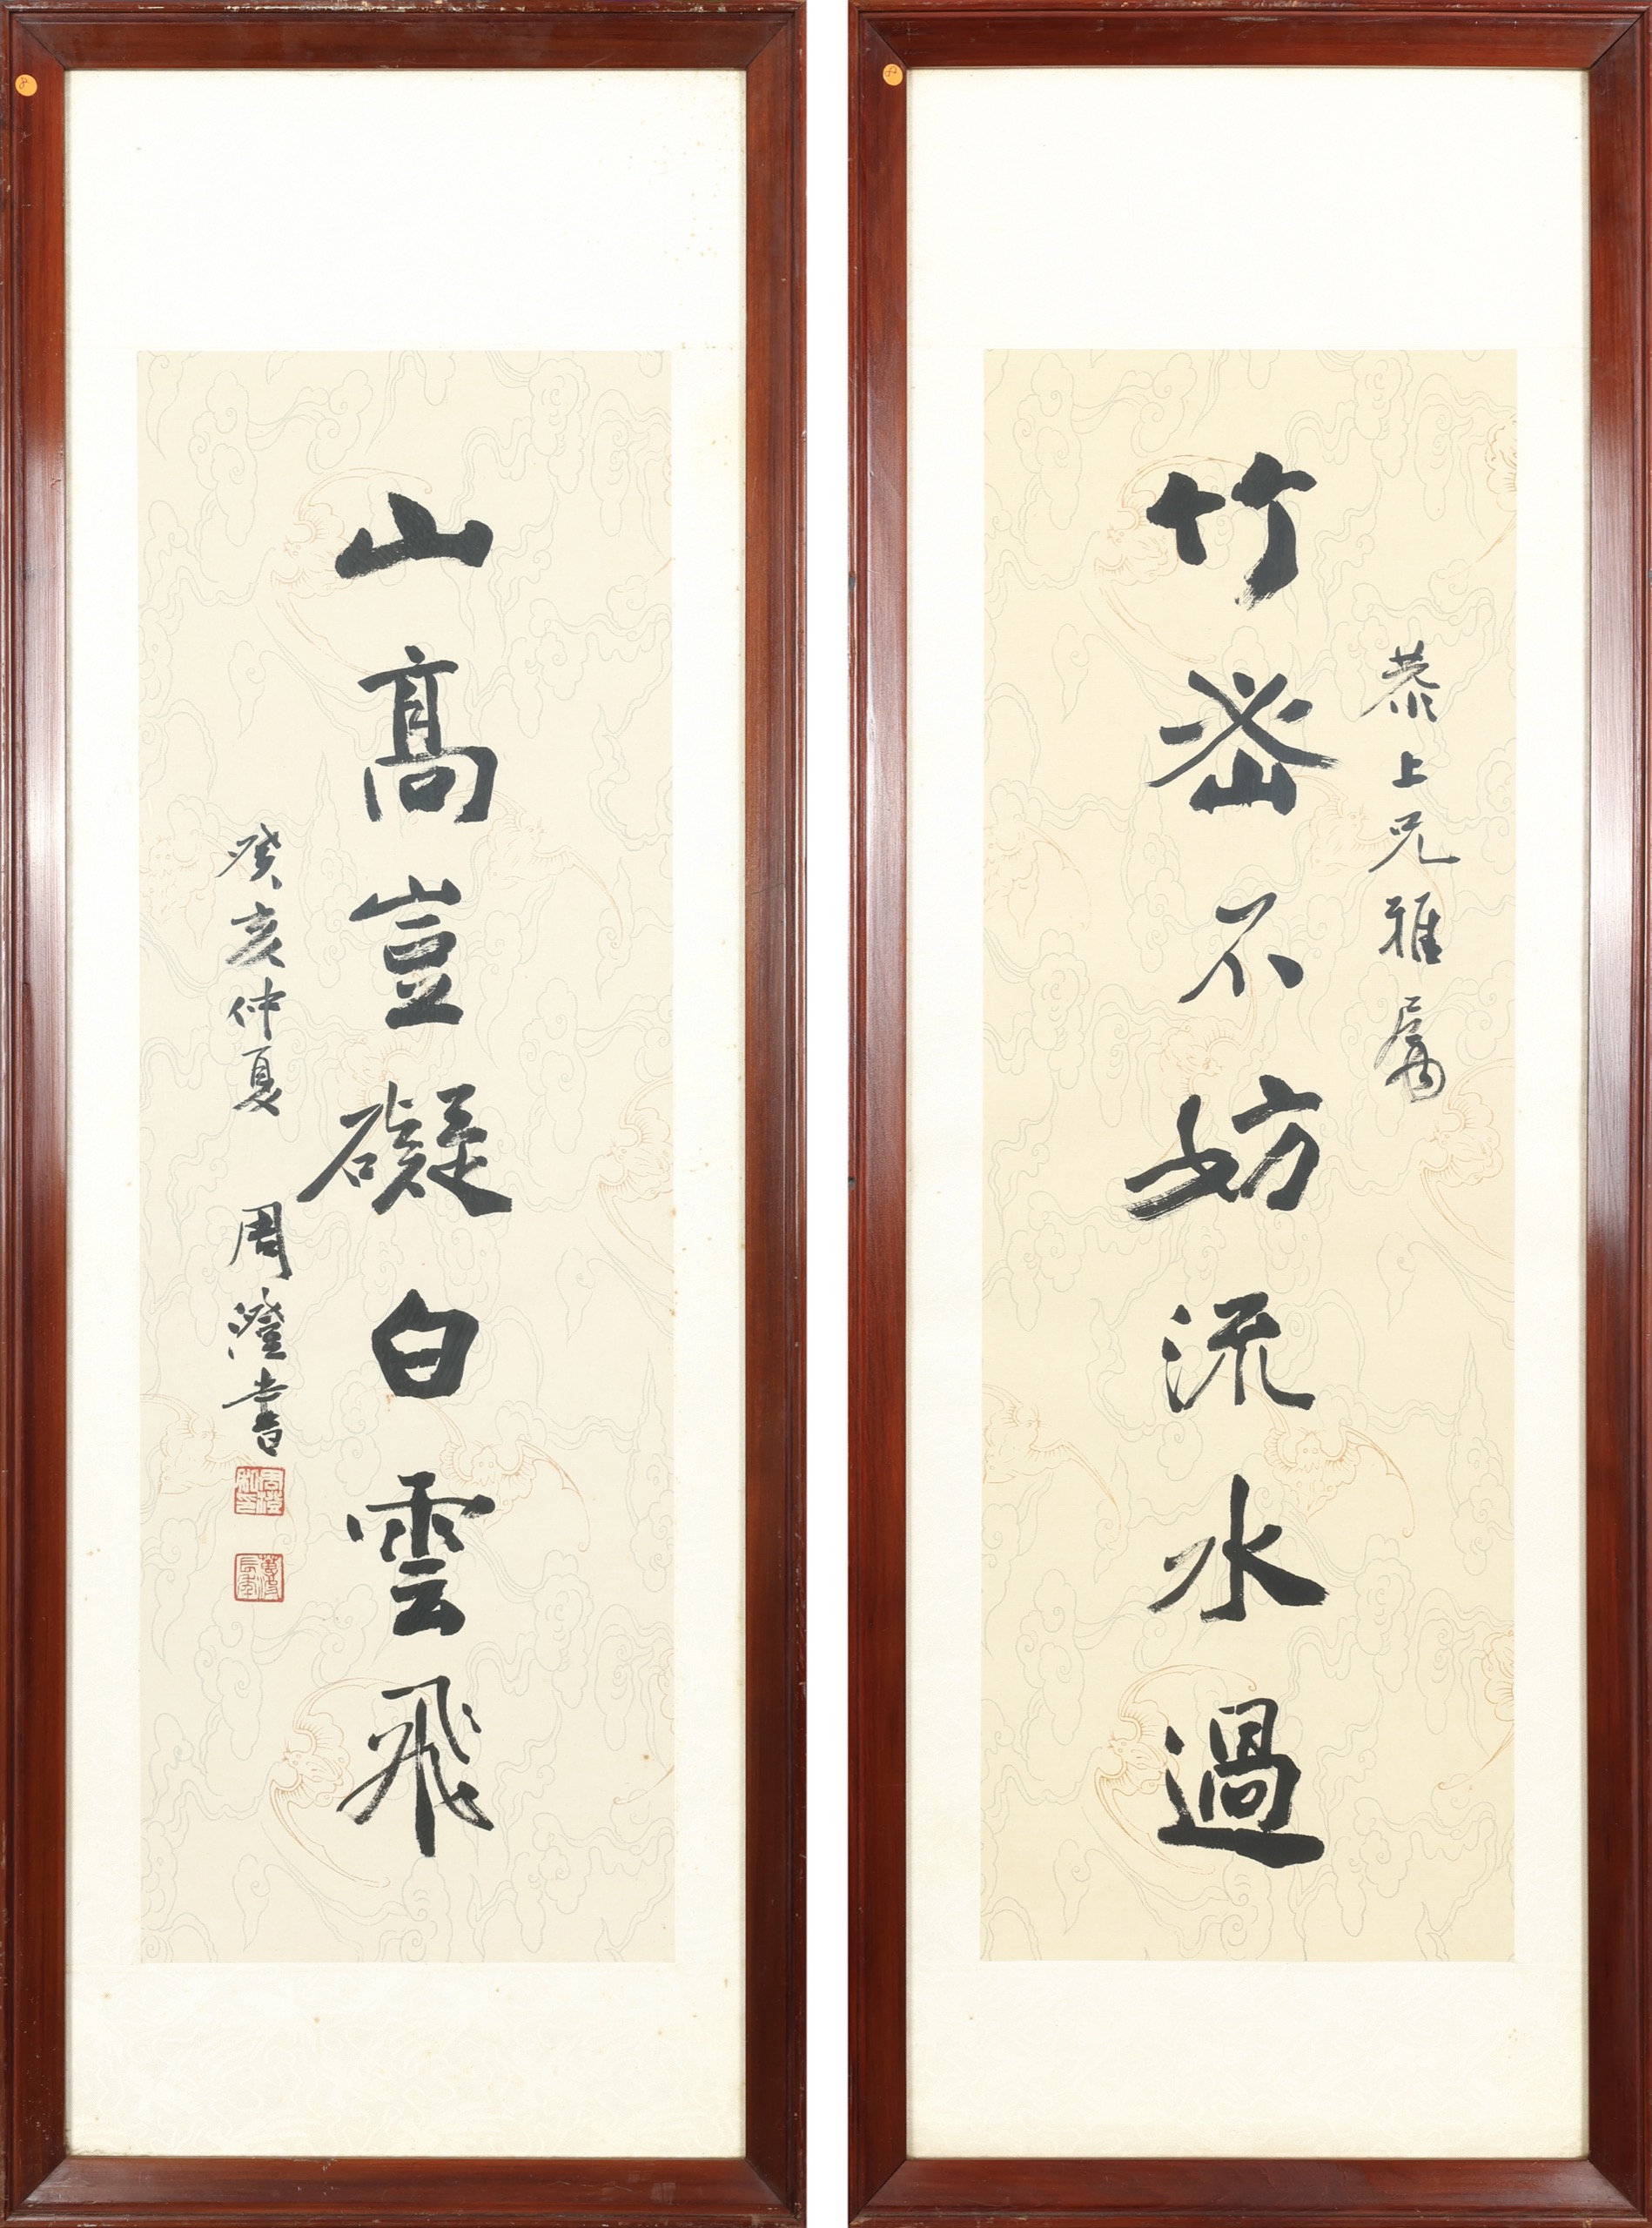 恭上兄雅屬
竹密不妨流水過
山高豈礙白雲飛
癸亥仲夏 周澄書
周澄私印